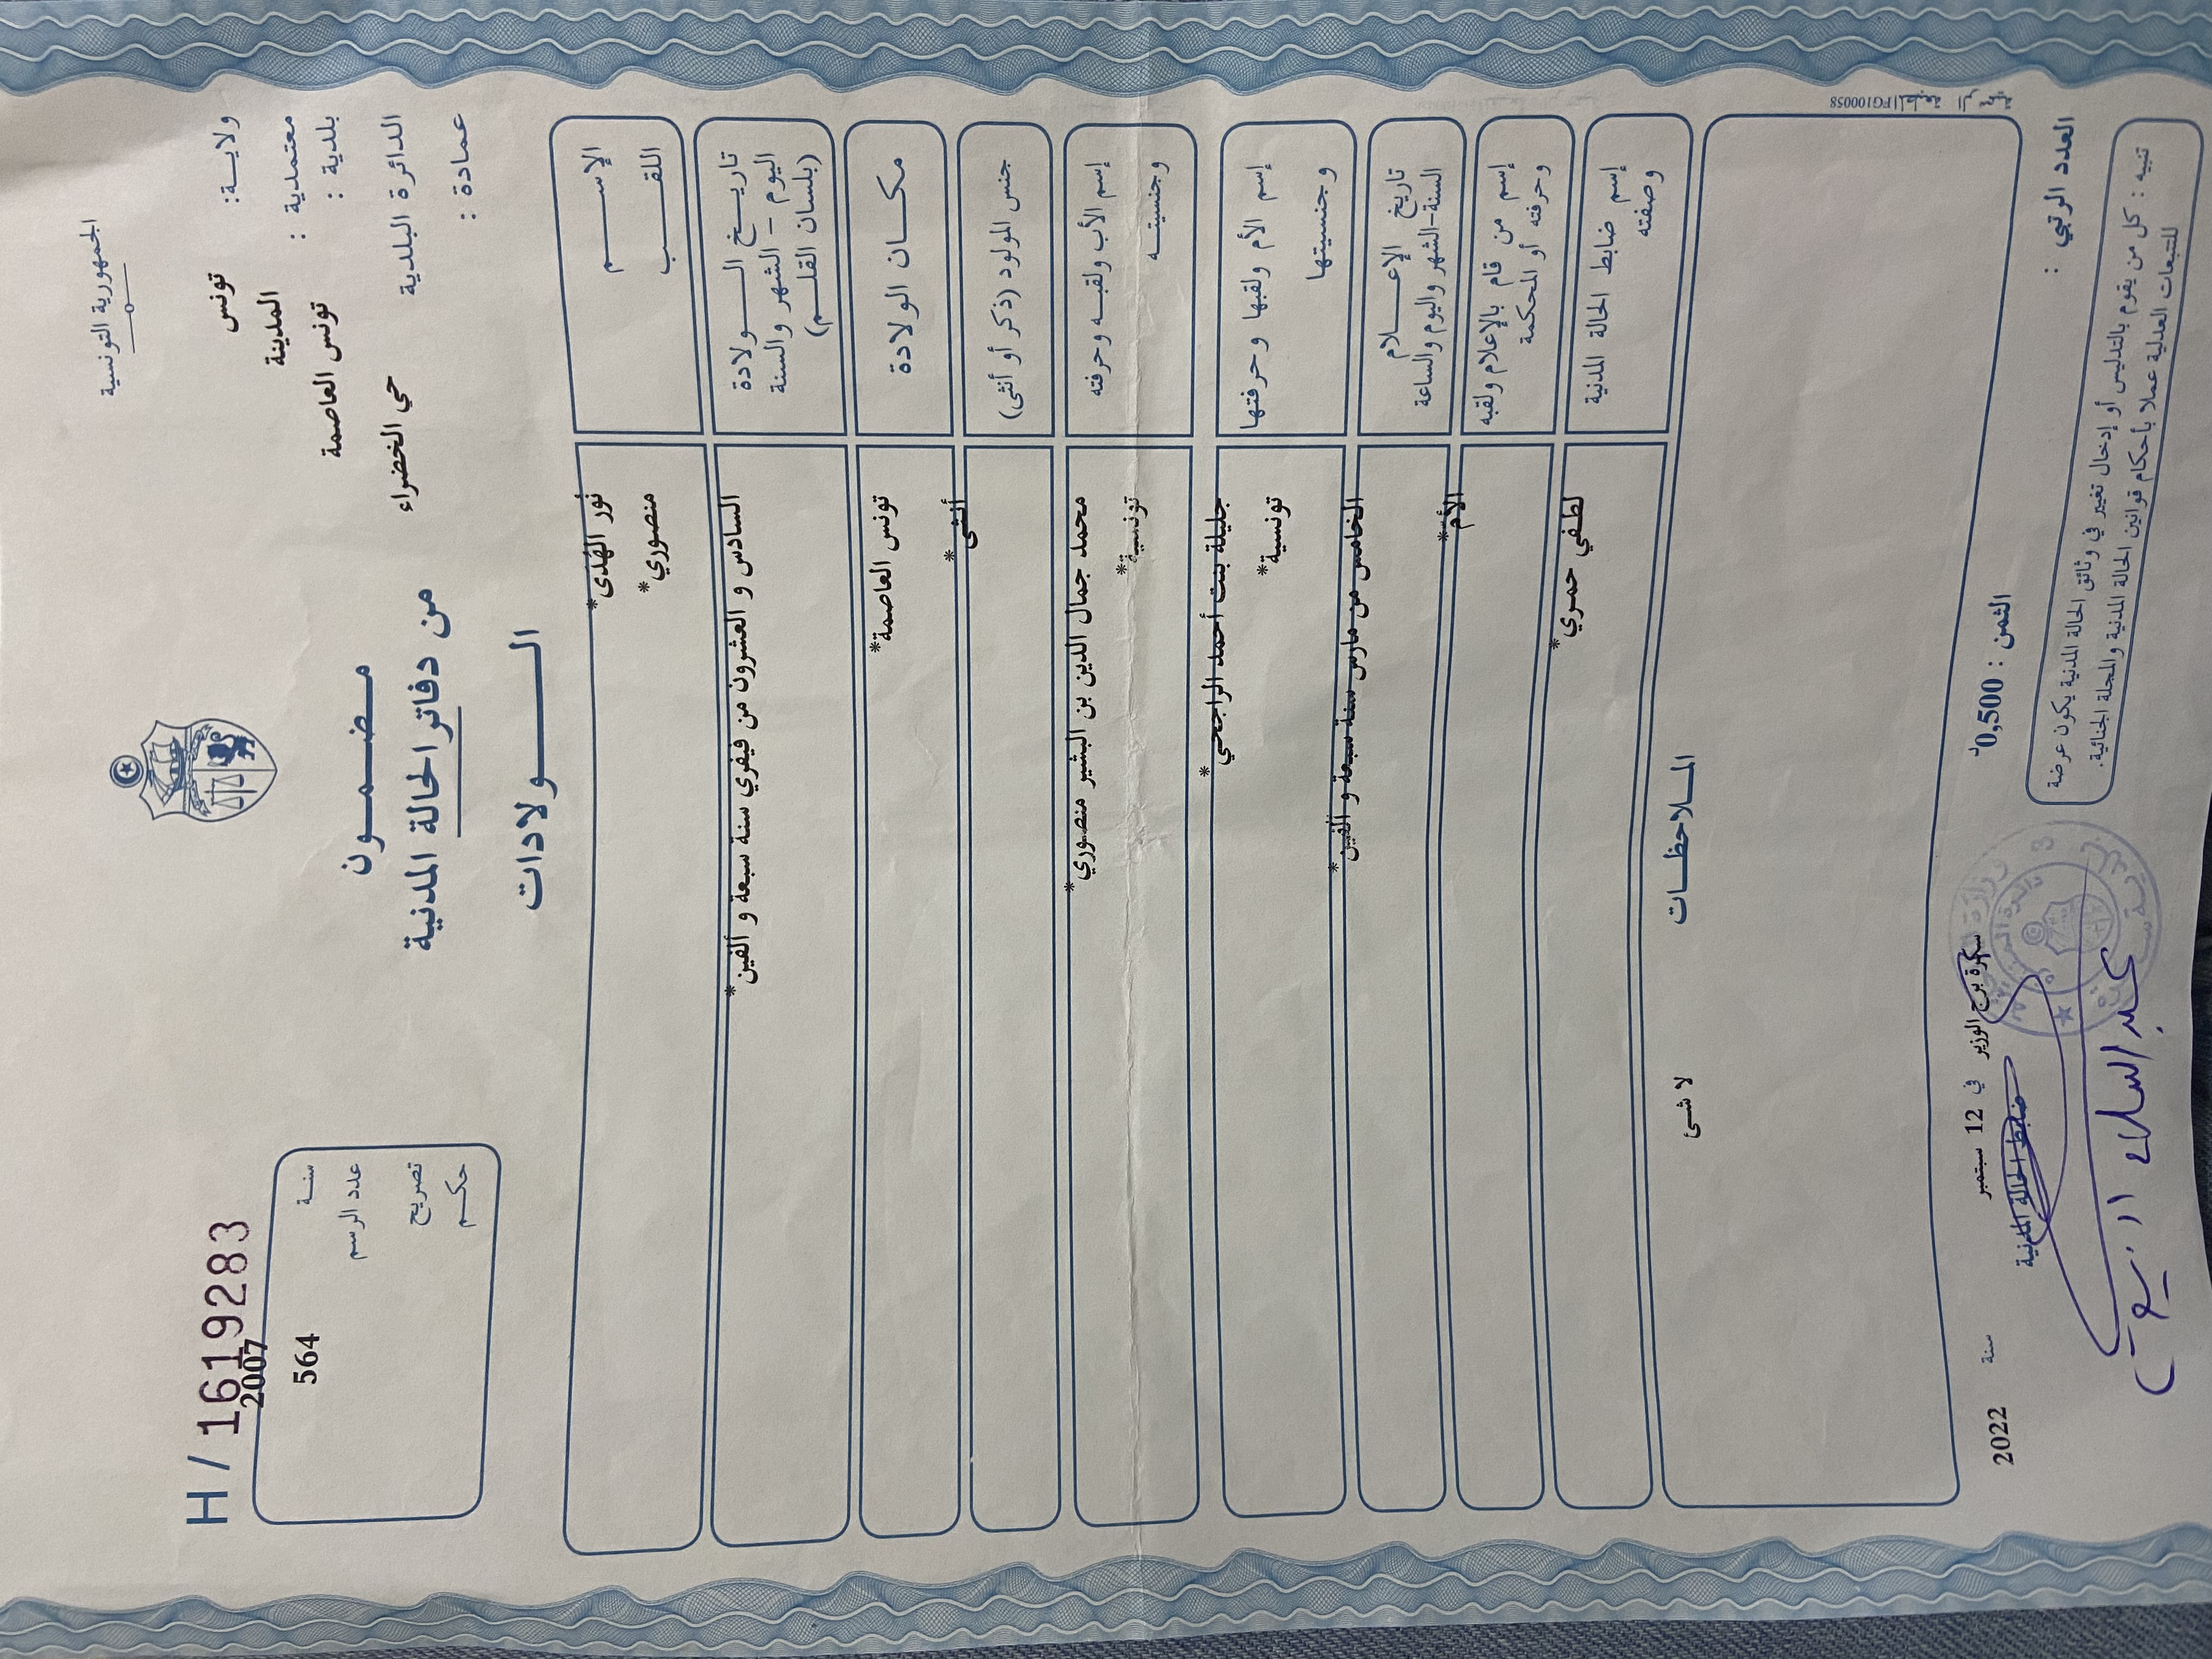 الجمهورية التونسية
ولايــة: تونس
معتمدية : المدينة
بلدية : تونس العاصمة
الدائرة البلدية حي الخضراء
عمادة :
H / 1619283
2007
سنـة
564
عدد الرسم
تصريح
حكـم
مضمــون
من دفاتر الحالة المدنية
الــولادات
الإســـم
نور الهدى*
اللقــب
منصوري*
تاريــخ الــولادة
اليوم - الشهر والسنة
(بلسان القلـم)
السادس و العشرون من فيفري سنة سبعة و ألفين*
مكــان الولادة
تونس العاصمة*
جنس المولود (ذكر أو أنثى)
أنثى*
إسم الأب ولقبـه وحرفته
محمد جمال الدين بن البشير منصوري*
وجنسيتـه
تونسية*
إسم الأم ولقبها وحرفتها
جليلة بنت أحمد الراجحي*
وجنسيتها
تونسية*
تاريخ الإعــلام
السنة-الشهر واليوم والساعة
الخامس من مارس سنة سبعة و ألفين*
إسم من قام بالإعلام ولقبه
وحرفته أو المحكمة
الأم*
إسم ضابط الحالة المدنية
وصفته
لطفي حمري*
الملاحظــات
لا شئ
المطبعة الرسمية FG100058
العدد الرتبي :
الثمن : 0,500د
سكرة برج الوزير في 12 سبتمبر سنة 2022
ضابط الحالة المدنية
تنبيه : كل من يقوم بالتدليس أو إدخال تغيير في وثائق الحالة المدنية يكون عرضة
للتتبعات العدلية عملا بأحكام قوانين الحالة المدنية والمجلة الجنائية.